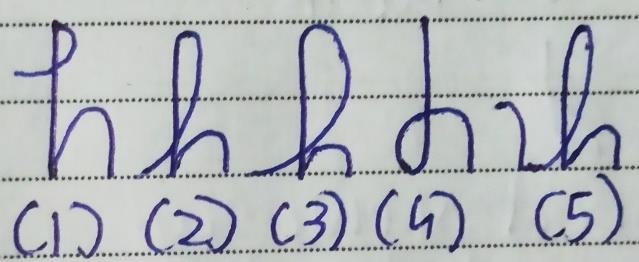 h h h h h
(1) (2) (3) (4) (5)